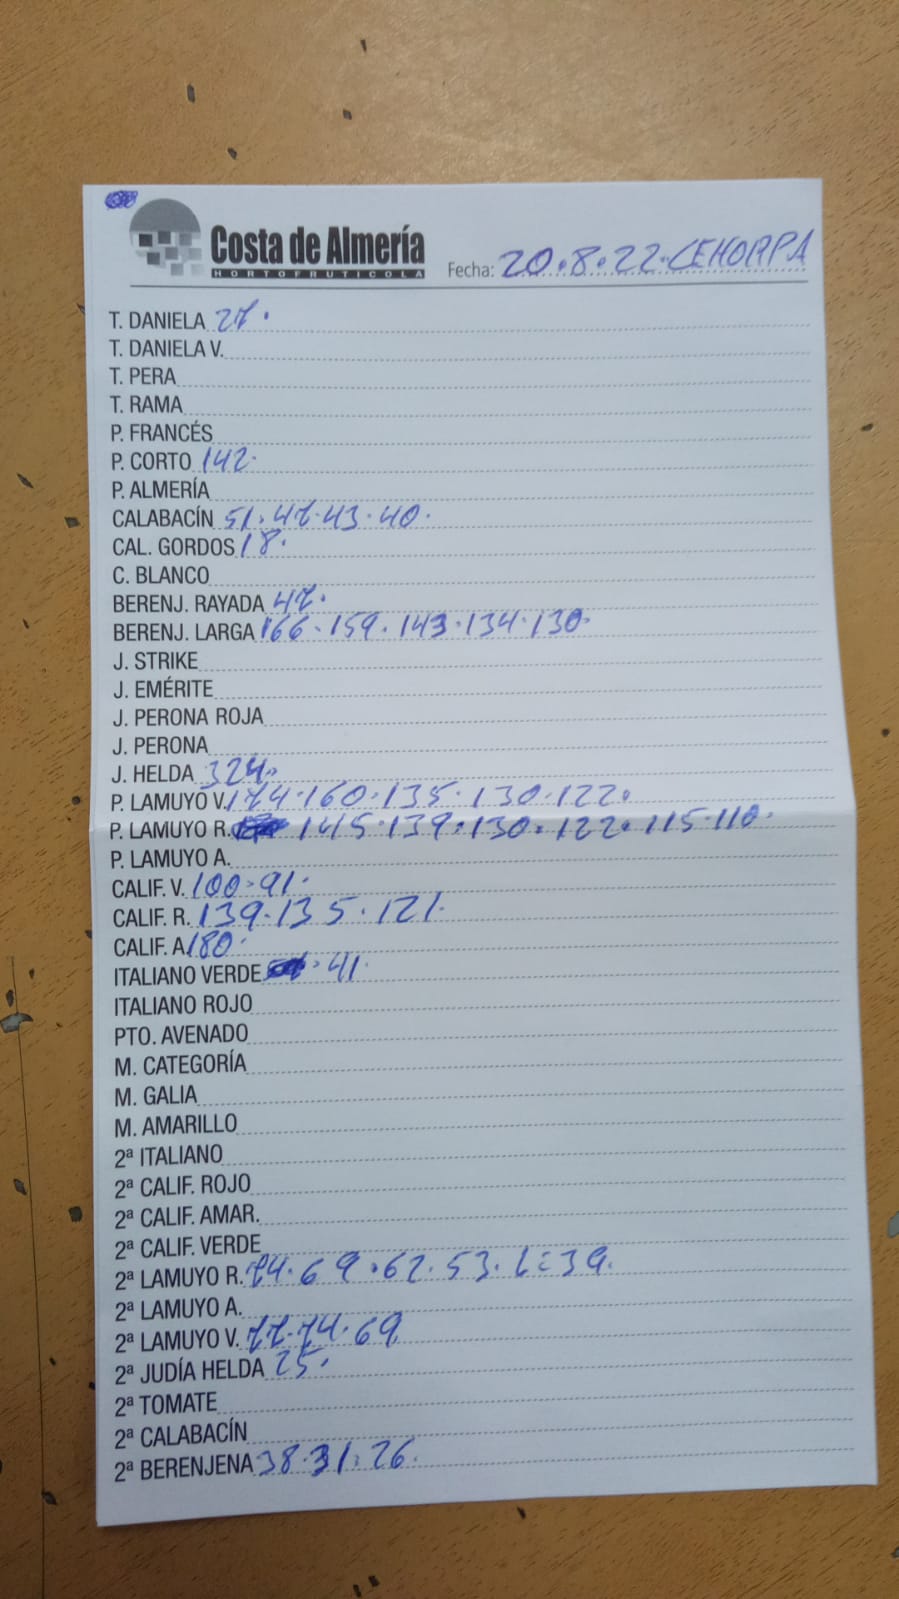 Costa de Almería
HORTOFRUTICOLA
Fecha: 20.8.22.CEHORPA
T. DANIELA 27.
T. DANIELA V.
T. PERA
T. RAMA
P. FRANCÉS
P. CORTO 142.
P. ALMERÍA
CALABACÍN 51.47.43.40.
CAL. GORDOS 18.
C. BLANCO
BERENJ. RAYADA 47.
BERENJ. LARGA 166.159.143.134.130.
J. STRIKE
J. EMÉRITE
J. PERONA ROJA
J. PERONA
J. HELDA 324.
P. LAMUYO V. 174.160.135.130.122.
P. LAMUYO R. 145.139.130.122.115.110.
P. LAMUYO A.
CALIF. V. 100.91.
CALIF. R. 139.135.121.
CALIF. A. 180.
ITALIANO VERDE . 41.
ITALIANO ROJO
PTO. AVENADO
M. CATEGORÍA
M. GALIA
M. AMARILLO
2ª ITALIANO
2ª CALIF. ROJO
2ª CALIF. AMAR.
2ª CALIF. VERDE
2ª LAMUYO R. 74.69.62.53. L=39.
2ª LAMUYO A.
2ª LAMUYO V. 77.74.69
2ª JUDÍA HELDA 25.
2ª TOMATE
2ª CALABACÍN
2ª BERENJENA 38.31.26.